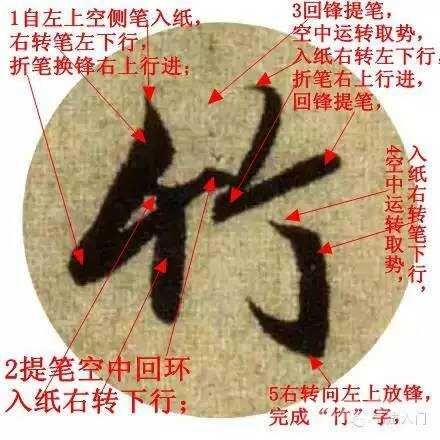 1自左上空侧笔入纸,
右转笔左下行,
折笔换锋右上行进;
3回锋提笔,
空中运转取势,
入纸右转左下行,
折笔右上行进,
回锋提笔,
入纸右转笔下行,
4空中运转取势,
竹
2提笔空中回环
入纸右转下行;
5右转向左上放锋,
完成“竹”字,
入门